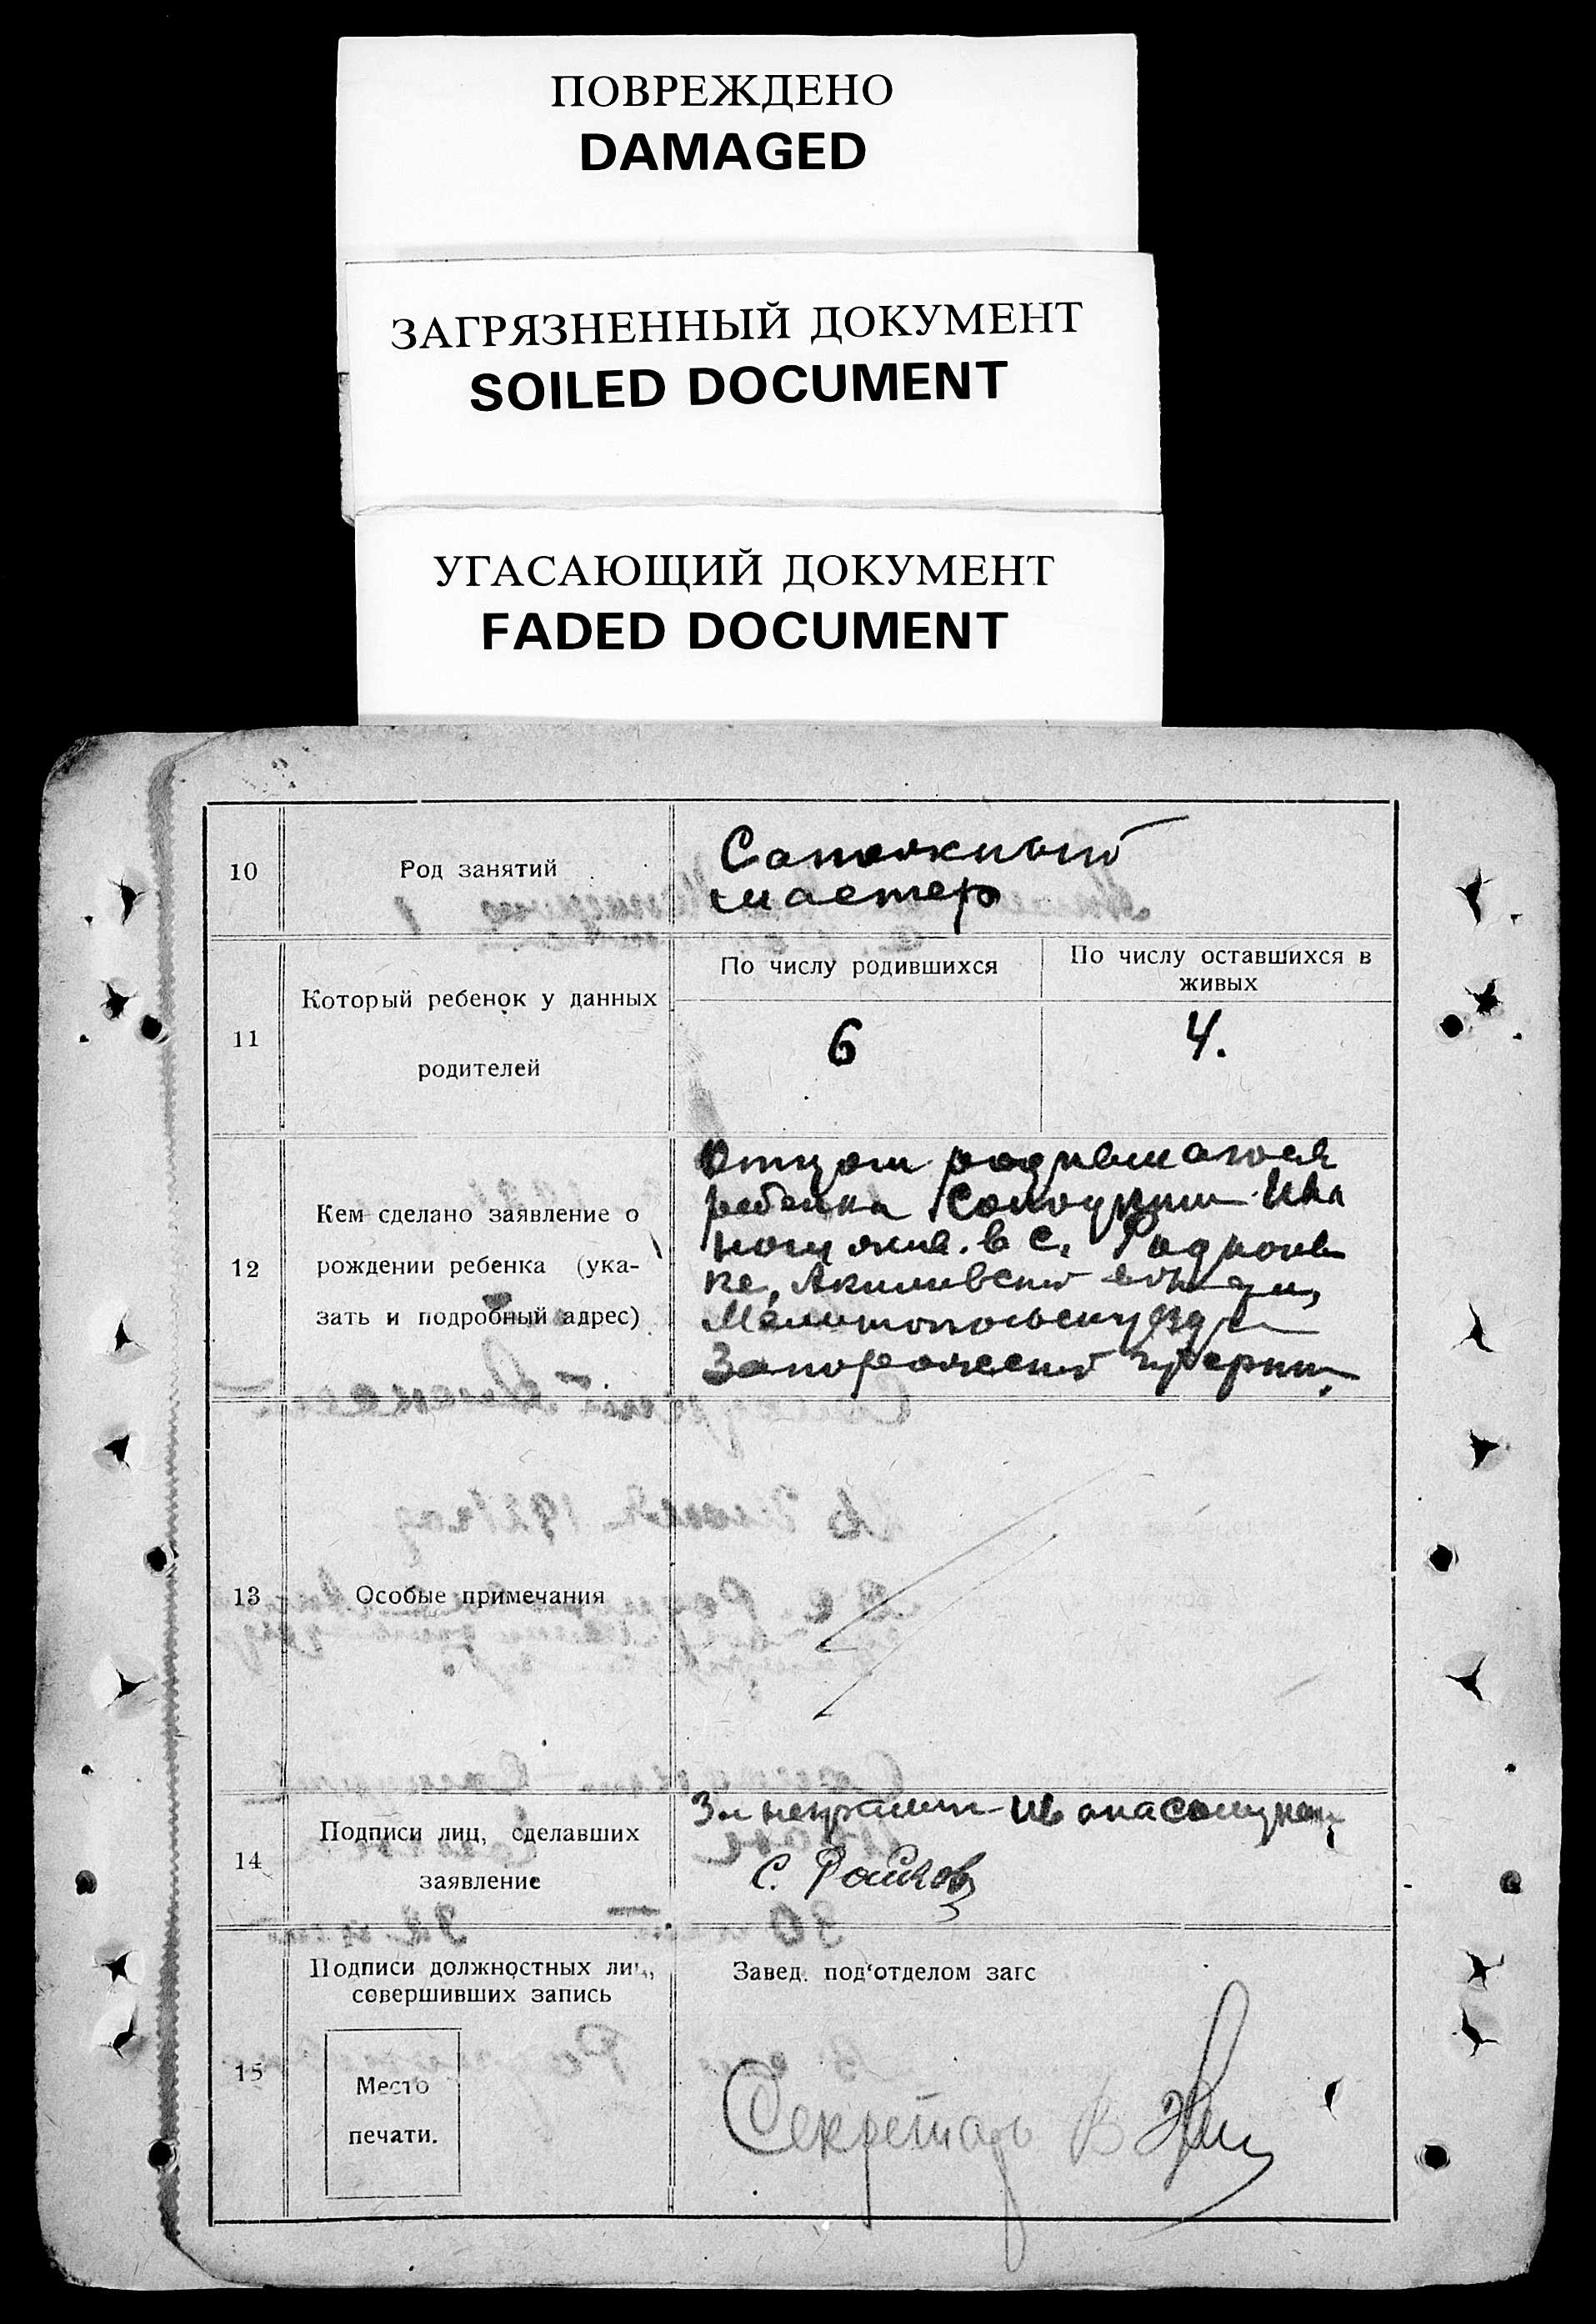 ПОВРЕЖДЕНО
DAMAGED
ЗАГРЯЗНЕННЫЙ ДОКУМЕНТ
SOILED DOCUMENT
УГАСАЮЩИЙ ДОКУМЕНТ
FADED DOCUMENT
10
Род занятий
Сапожный
мастер
11
Который ребенок у данных
родителей
По числу родившихся
По числу оставшихся в
живых
6
4.
12
Кем сделано заявление о
рождении ребенка (ука-
зать и подробный адрес)
Отцом родившагося
ребенка Солодким Ива
ном жив. в с. Родионов
ке, Акимовской
Мелитопольск уезда
Запорожской губернии.
13
Особые примечания
14
Подписи лиц, сделавших
заявление
За неграмотн
С.
15
Подписи должностных лиц,
совершивших запись
Место
печати.
Завед. под'отделом загс
Секретарь В